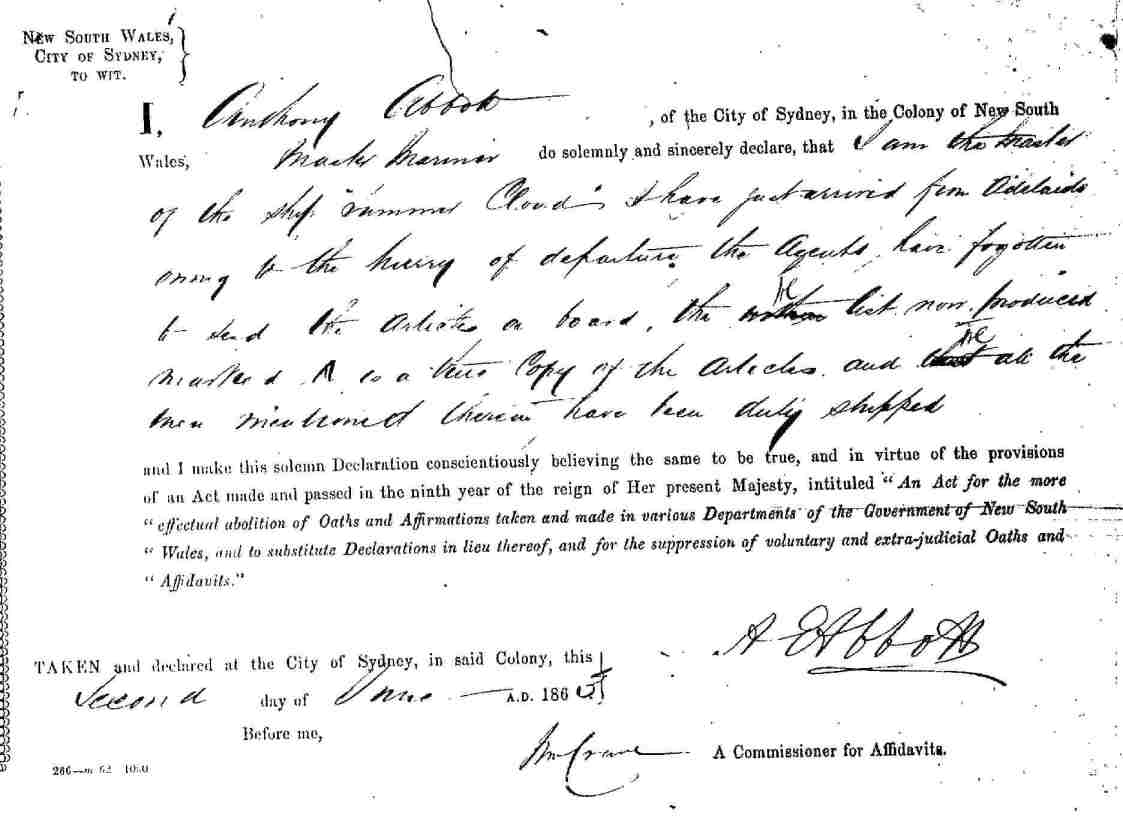 NEW SOUTH WALES,
CITY OF SYDNEY,
TO WIT.
I, Anthony Abbott , of the City of Sydney, in the Colony of New South
Wales, Master Mariner do solemnly and sincerely declare, that I am the Master
of the ship "Summer Cloud" I have just arrived from Adelaide
owing to the hurry of departure the Agents have fogotten
to send the Articles on board, the list now produced
marked A is a true Copy of the Articles and all the
men mentioned therein have been duly shipped
and I make this solemn Declaration conscientiously believing the same to be true, and in virtue of the provisions
of an Act made and passed in the ninth year of the reign of Her present Majesty, intituled "An Act for the more
"effectual abolition of Oaths and Affirmations taken and made in various Departments of the Government of New South
"Wales, and to substitute Declarations in lieu thereof, and for the suppression of voluntary and extra-judicial Oaths and
"Affidavits."
A E Abbott
TAKEN and declared at the City of Sydney, in said Colony, this
Second day of June A.D. 186
Before me,
A Commissioner for Affidavits.
266—m 62 10.0